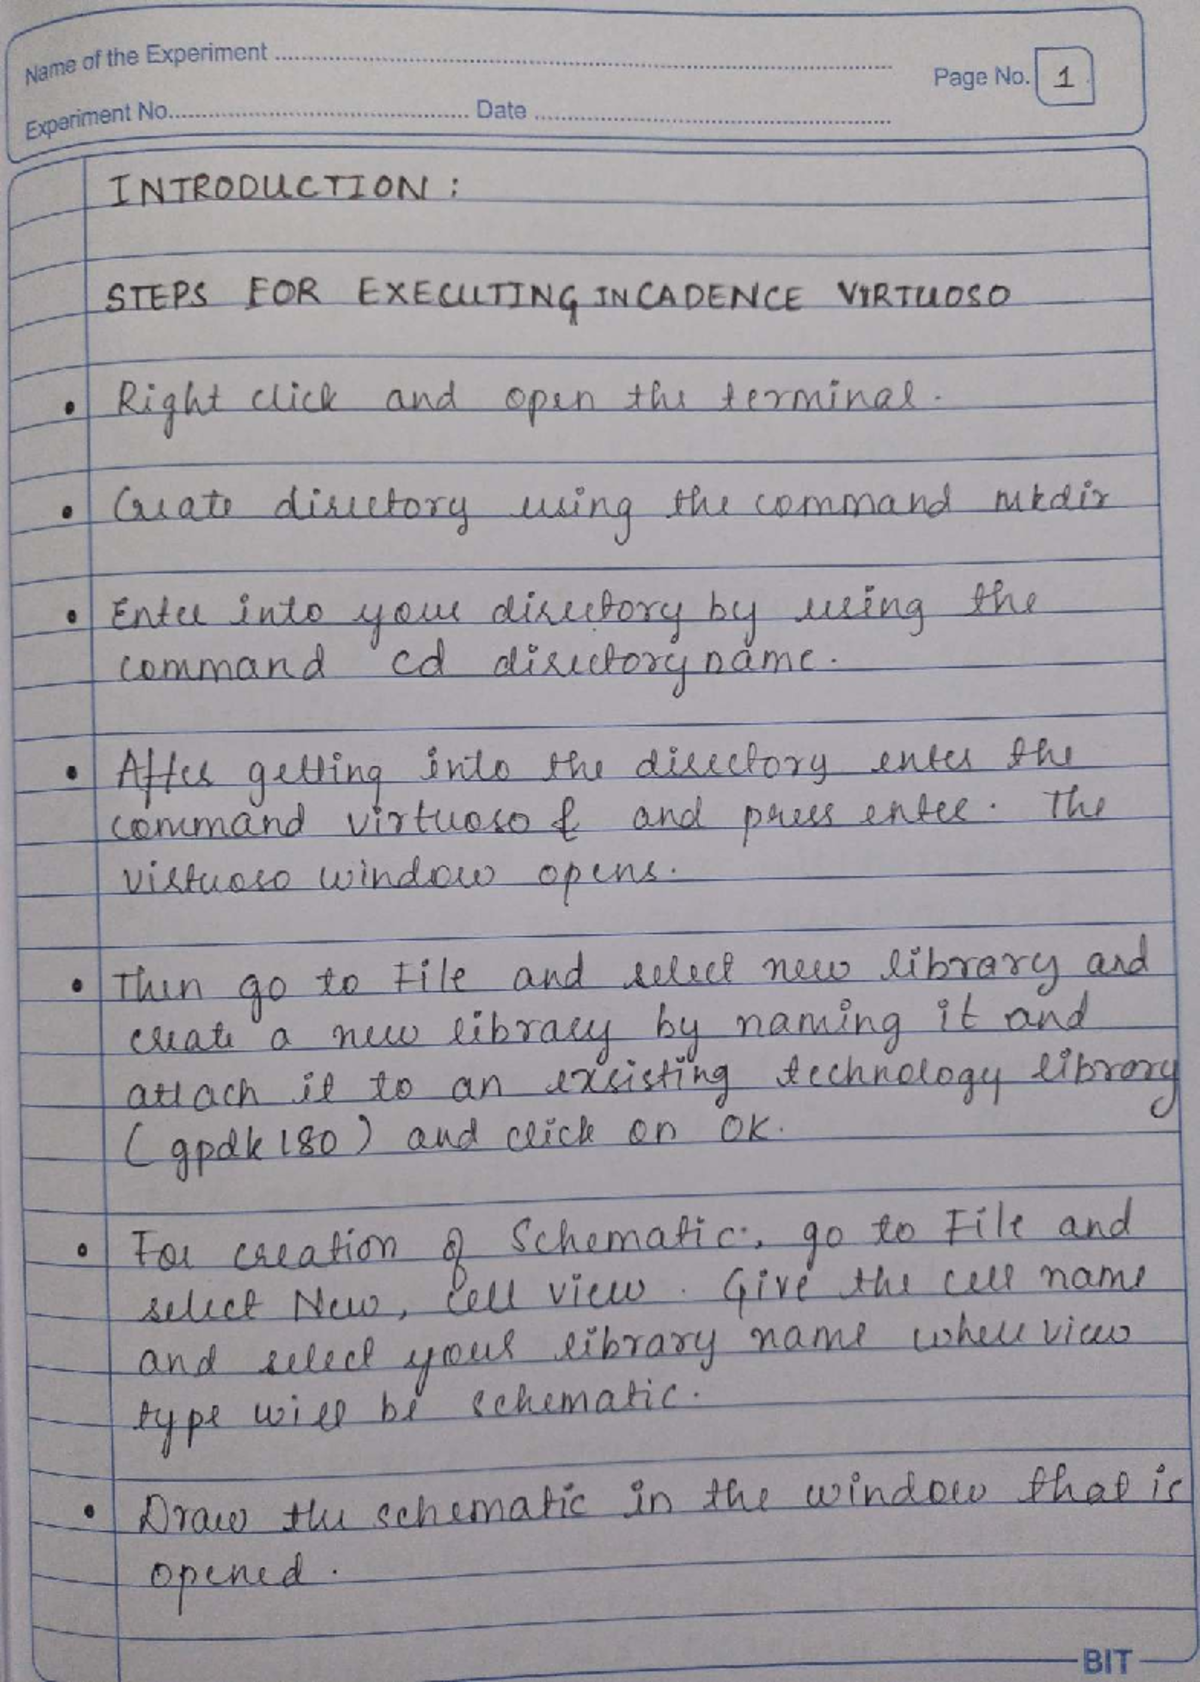 Name of the Experiment
Page No. 1
Experiment No. Date
INTRODUCTION :
STEPS FOR EXECUTING IN CADENCE VIRTUOSO
• Right click and open the terminal.
• Create directory using the command mkdir
• Enter into your directory by using the
command cd directoryname.
• After getting into the directory enter the
command virtuoso & and press enter. The
virtuoso window opens.
• Then go to File and select new library and
create a new library by naming it and
attach it to an exsisting technology library
(gpdk180) and click on OK.
• For creation of Schematic, go to File and
select New, Cell view. Give the cell name
and select your library name where view
type will be schematic.
• Draw the schematic in the window that is
opened.
BIT